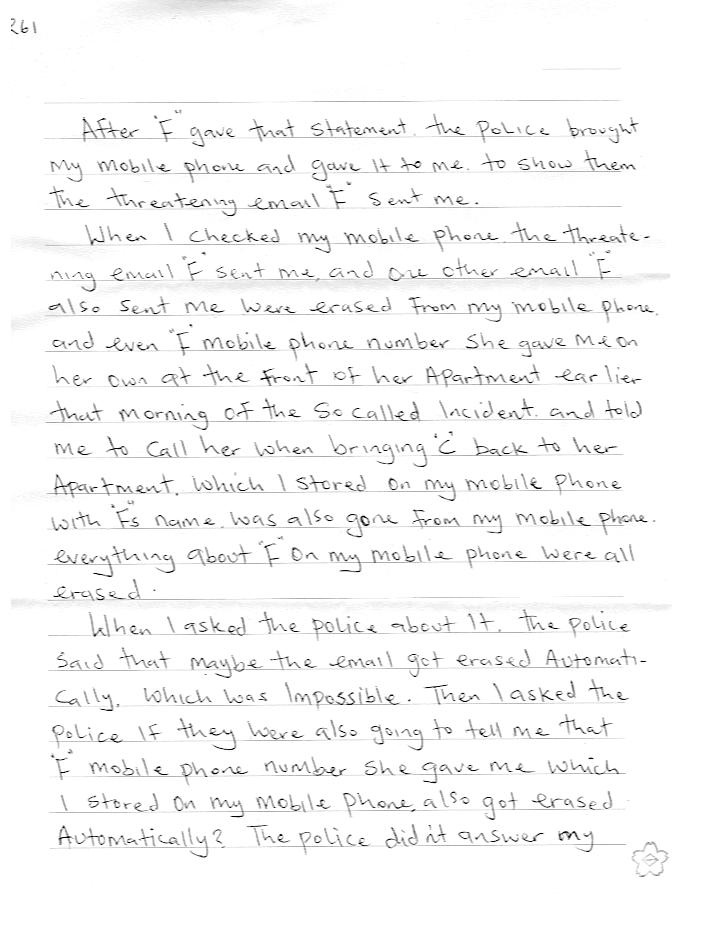 261
After "F" gave that statement. the Police brought
my mobile phone and gave it to me. to show them
the threatening email "F" sent me.
When I checked my mobile phone. the threate-
ning email "F" sent me, and one other email "F"
also sent me were erased from my mobile phone,
and even "F" mobile phone number she gave me on
her own at the front of her Apartment earlier
that morning of the So called Incident. and told
me to call her when bringing "C" back to her
Apartment. which I stored on my mobile phone
with "F"s name. was also gone from my mobile phone.
everything about "F" on my mobile phone were all
erased.
When I asked the police about it. the police
said that maybe the email got erased Automati-
cally. which was Impossible. Then I asked the
Police if they were also going to tell me that
"F" mobile phone number she gave me which
I stored on my mobile phone, also got erased
Automatically? The police didn't answer my